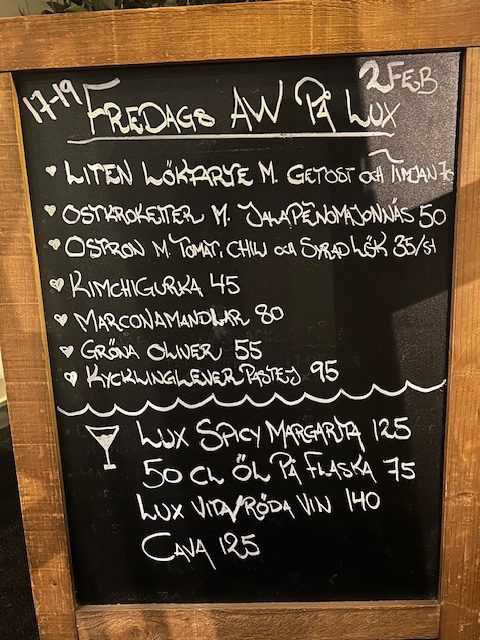 17-19
2 FEB
FREDAGS AW PÅ LUX
LITEN LÖKTARTE M. GETOST OCH TIMJAN 70
OSTKROKETTER M. JALAPEÑOMAJONNÄS 50
OSTRON M. TOMAT, CHILI OCH SYRAD LÖK 35/ST
KIMCHIGURKA 45
MARCONAMANDLAR 80
GRÖNA OLIVER 55
KYCKLINGLEVERPASTEJ 95
LUX SPICY MARGARITA 125
50 CL ÖL PÅ FLASKA 75
LUX VITA/RÖDA VIN 140
CAVA 125